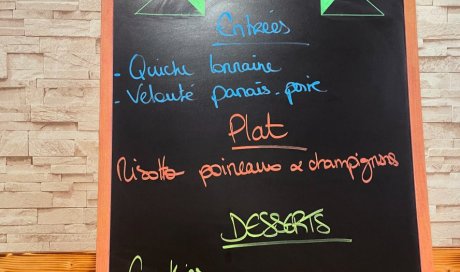 Entrées
- Quiche lorraine
- Velouté panais-poire
Plat
Risotto poireaux & champignons
DESSERTS